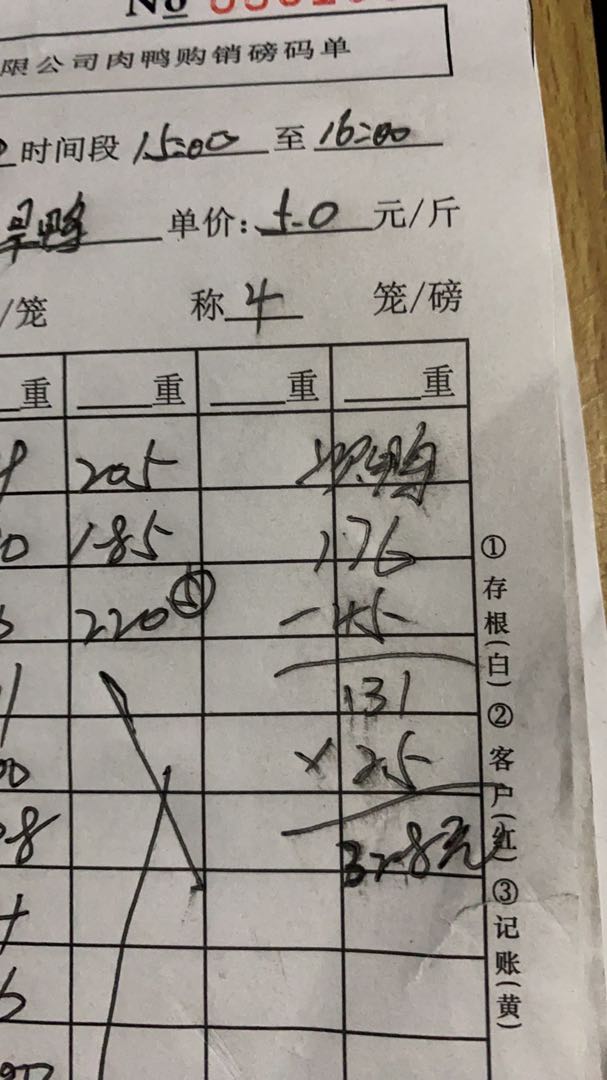 No
限公司肉鸭购销磅码单
时间段 15:00 至 16:00
鸭 单价: 5.0 元/斤
/笼 称 4 笼/磅
重 重 重 重
205 鸭
0 185 176
220 ⑤ -45
131
00 × 2.5
8 328元
①存根(白) ②客户(红) ③记账(黄)